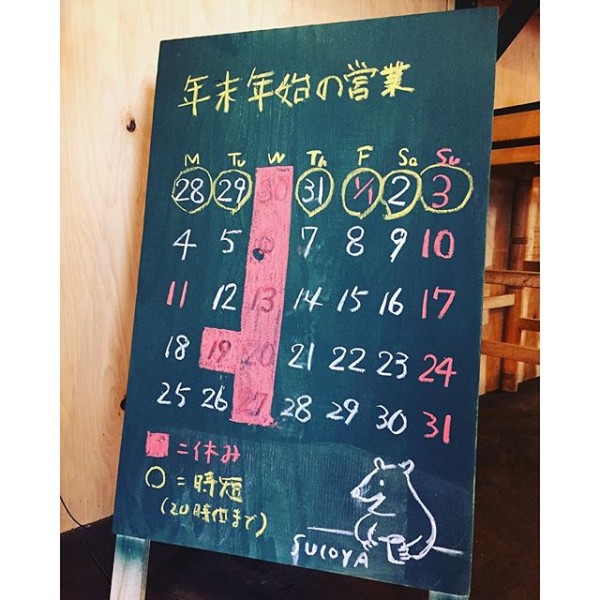 年末年始の営業
M Tu W Th F Sa Su
28 29 30 31 1/1 2 3
4 5 6 7 8 9 10
11 12 13 14 15 16 17
18 19 20 21 22 23 24
25 26 27 28 29 30 31
=休み
○=時短
(20時位まで)
SUCOYA